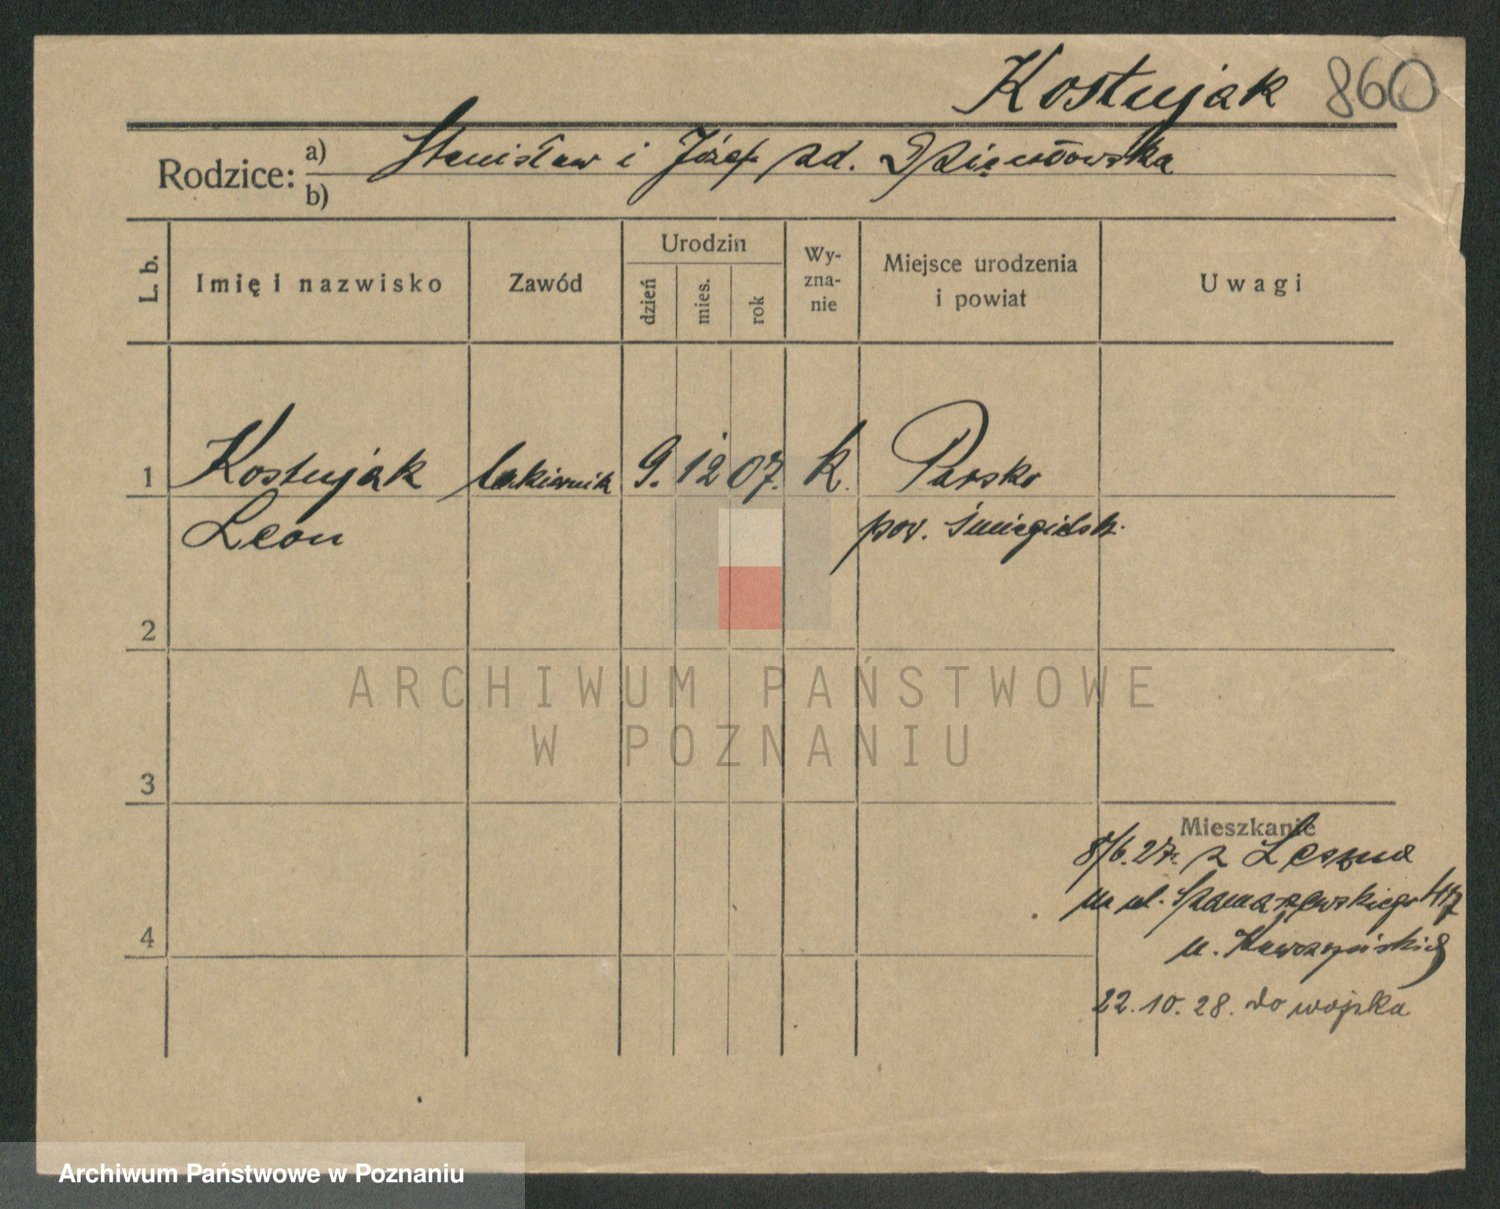 Kostujak 860
Rodzice: a) Stanisław i Józef. zd.
b)
L. b.
Imię i nazwisko
Zawód
Urodzin
dzień
mies.
rok
Wy-
zna-
nie
Miejsce urodzenia
i powiat
Uwagi
1 Kostujak lakiernik 9. 12 07. k. Parsko
Leon pow. śmigielsk.
2
3
4
Mieszkanie
8/6.27. z Leszna
na ul. Szamarzewskiego
u.
22.10.28. do wojska
ARCHIWUM PAŃSTWOWE
W POZNANIU
Archiwum Państwowe w Poznaniu